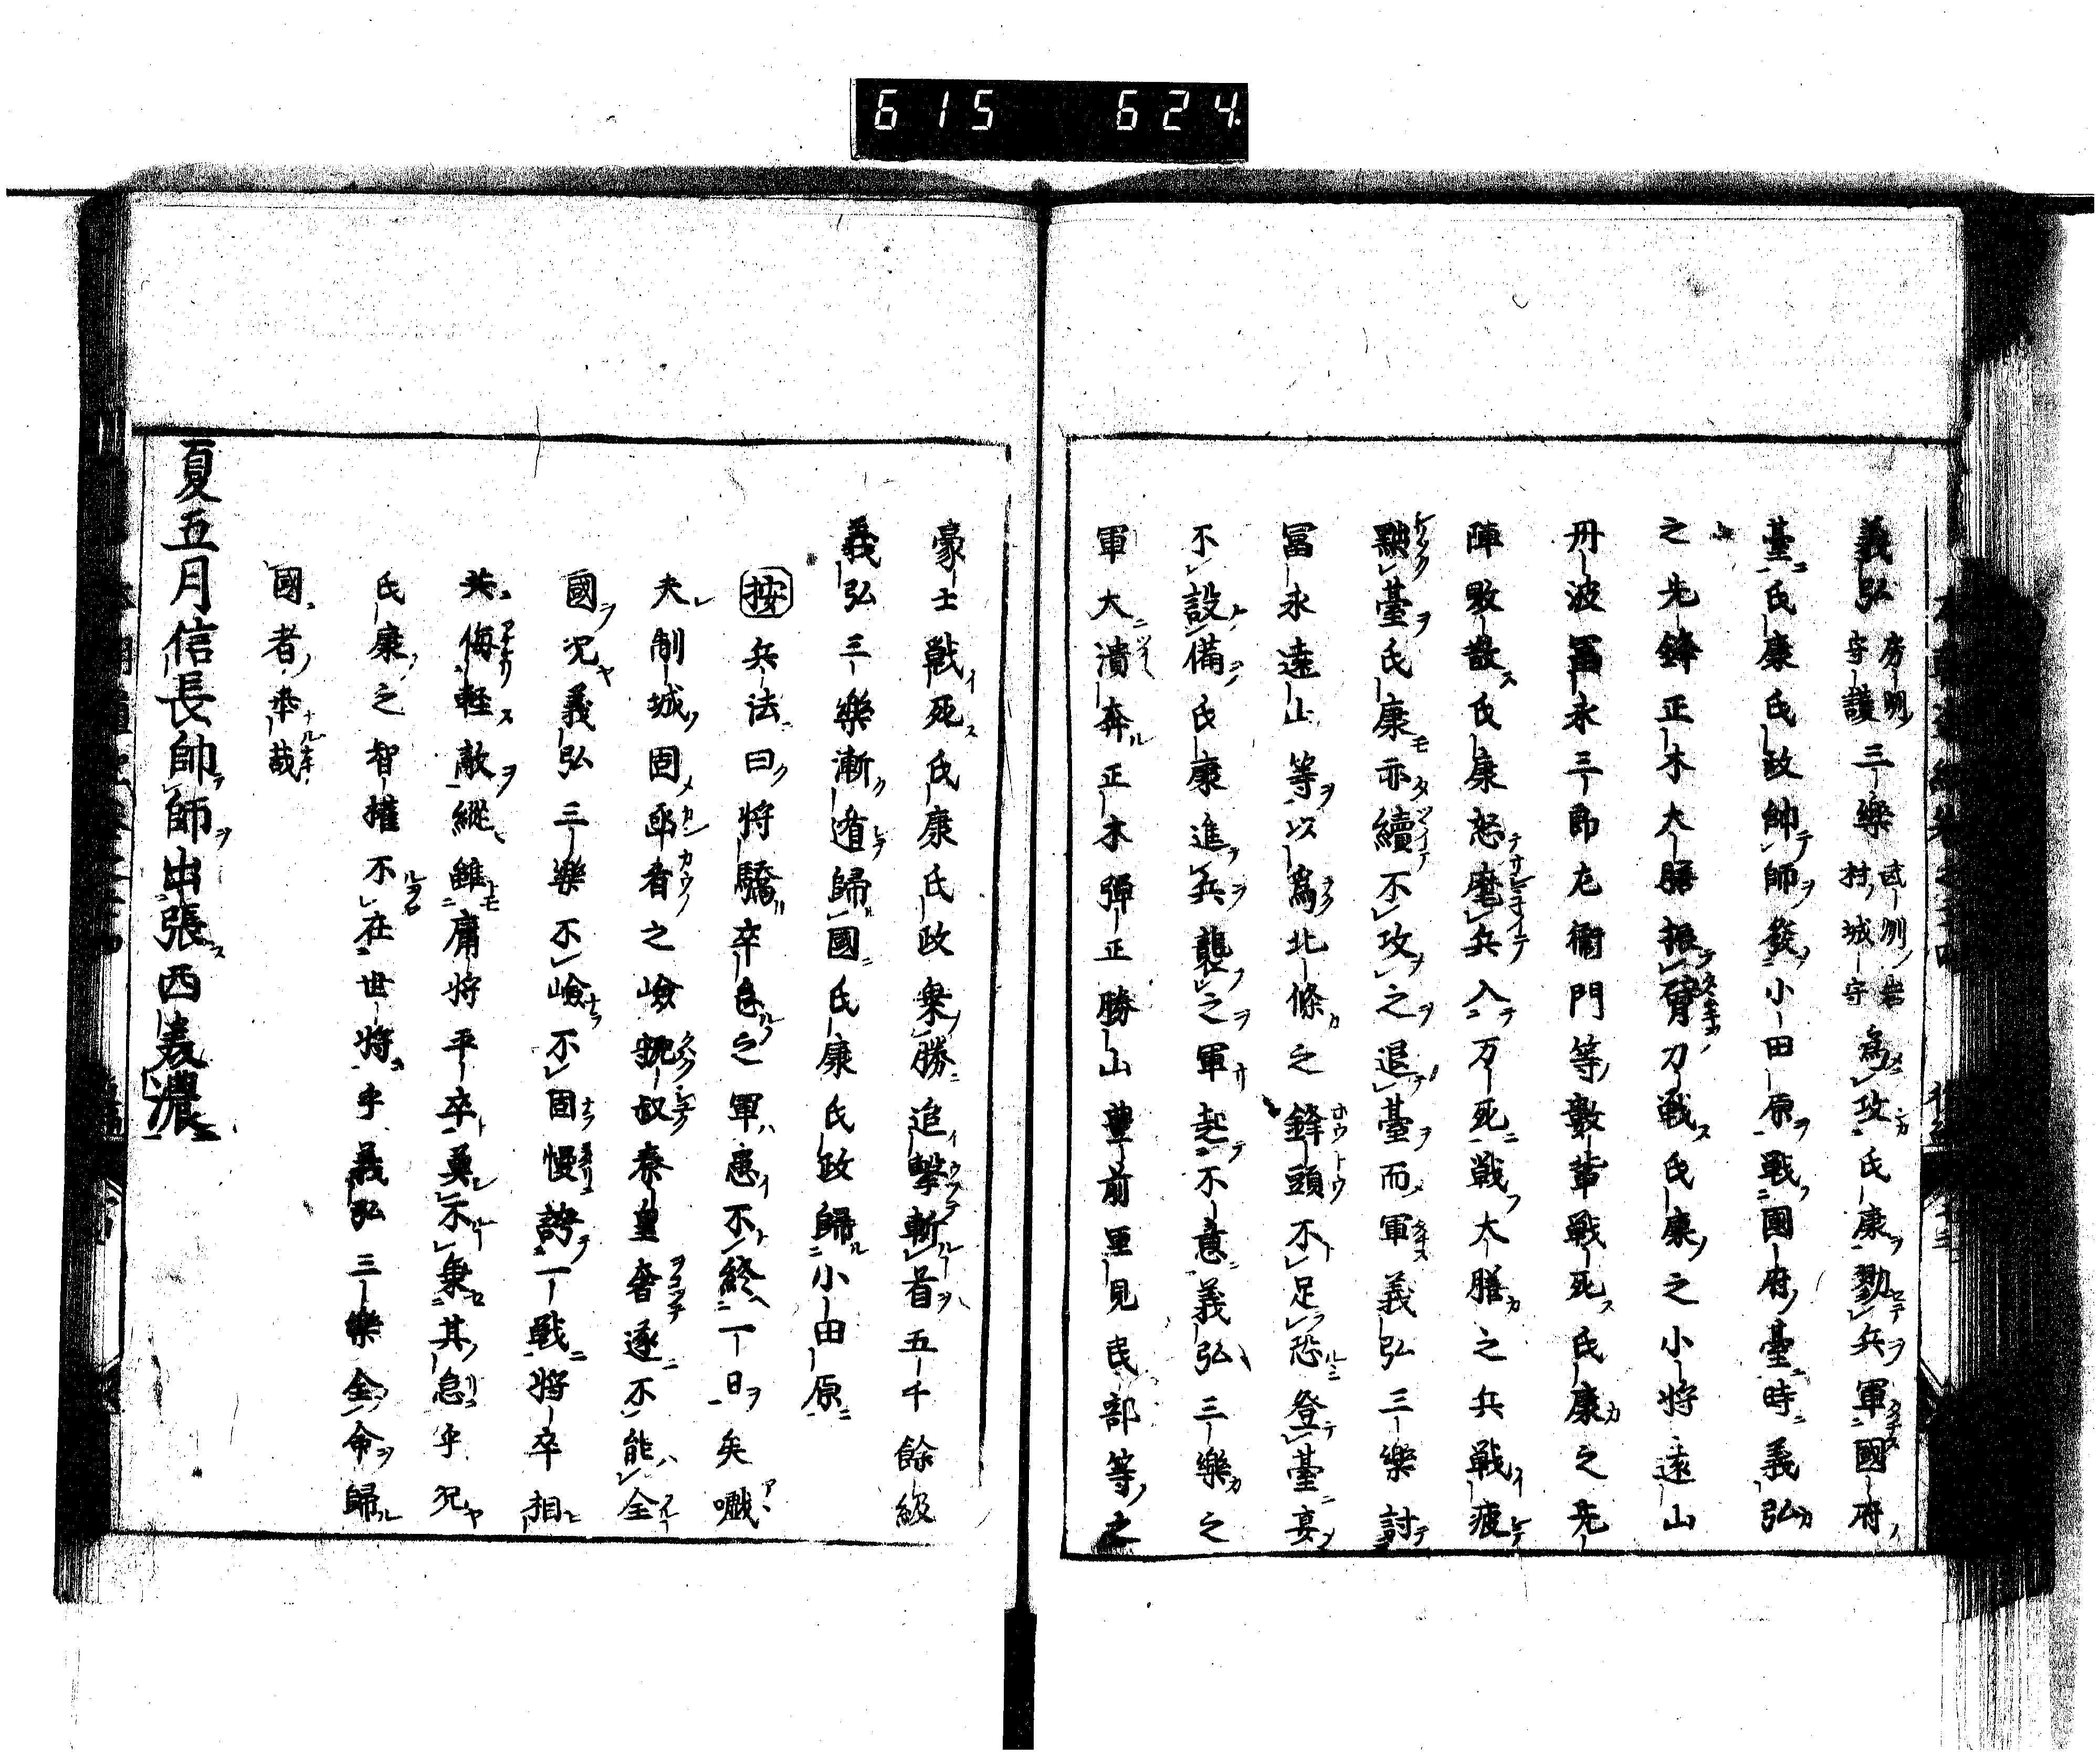 615 624.
義弘房州守護三樂武州岩村城守為攻氏康勠兵軍國府
臺氏康氏政帥師發小田原戰國府臺時義弘
之先鋒正木大膳振臂力戰氏康之小將遠山
丹波冨永三郎左衛門等數輩戰死氏康之先
陣敗散氏康怒麾兵入万死戰大膳之兵戰疲
點臺氏康亦續不攻之退臺而軍義弘三樂討
冨永遠山等以為北條之鋒頭不足恐登臺宴
不設備氏康進兵襲之軍起不意義弘三樂之
軍大潰奔正木彈正勝山豊前里見民部等之
豪士戰死氏康氏政乗勝追擊斬首五千餘級
義弘三樂漸遁歸國氏康氏政歸小田原
按兵法曰将驕卒怠之軍患不終一日矣嚱
夫制城固郾者之嶮親叔秦皇奢遂不能全
國况義弘三樂不嶮不固慢誇一戰将卒相
共侮輕敵縱雖庸将平卒奠不乗其怠乎况
氏康之智權不在世将乎義弘三樂全命歸
國者幸哉
夏五月信長帥師出張西美濃